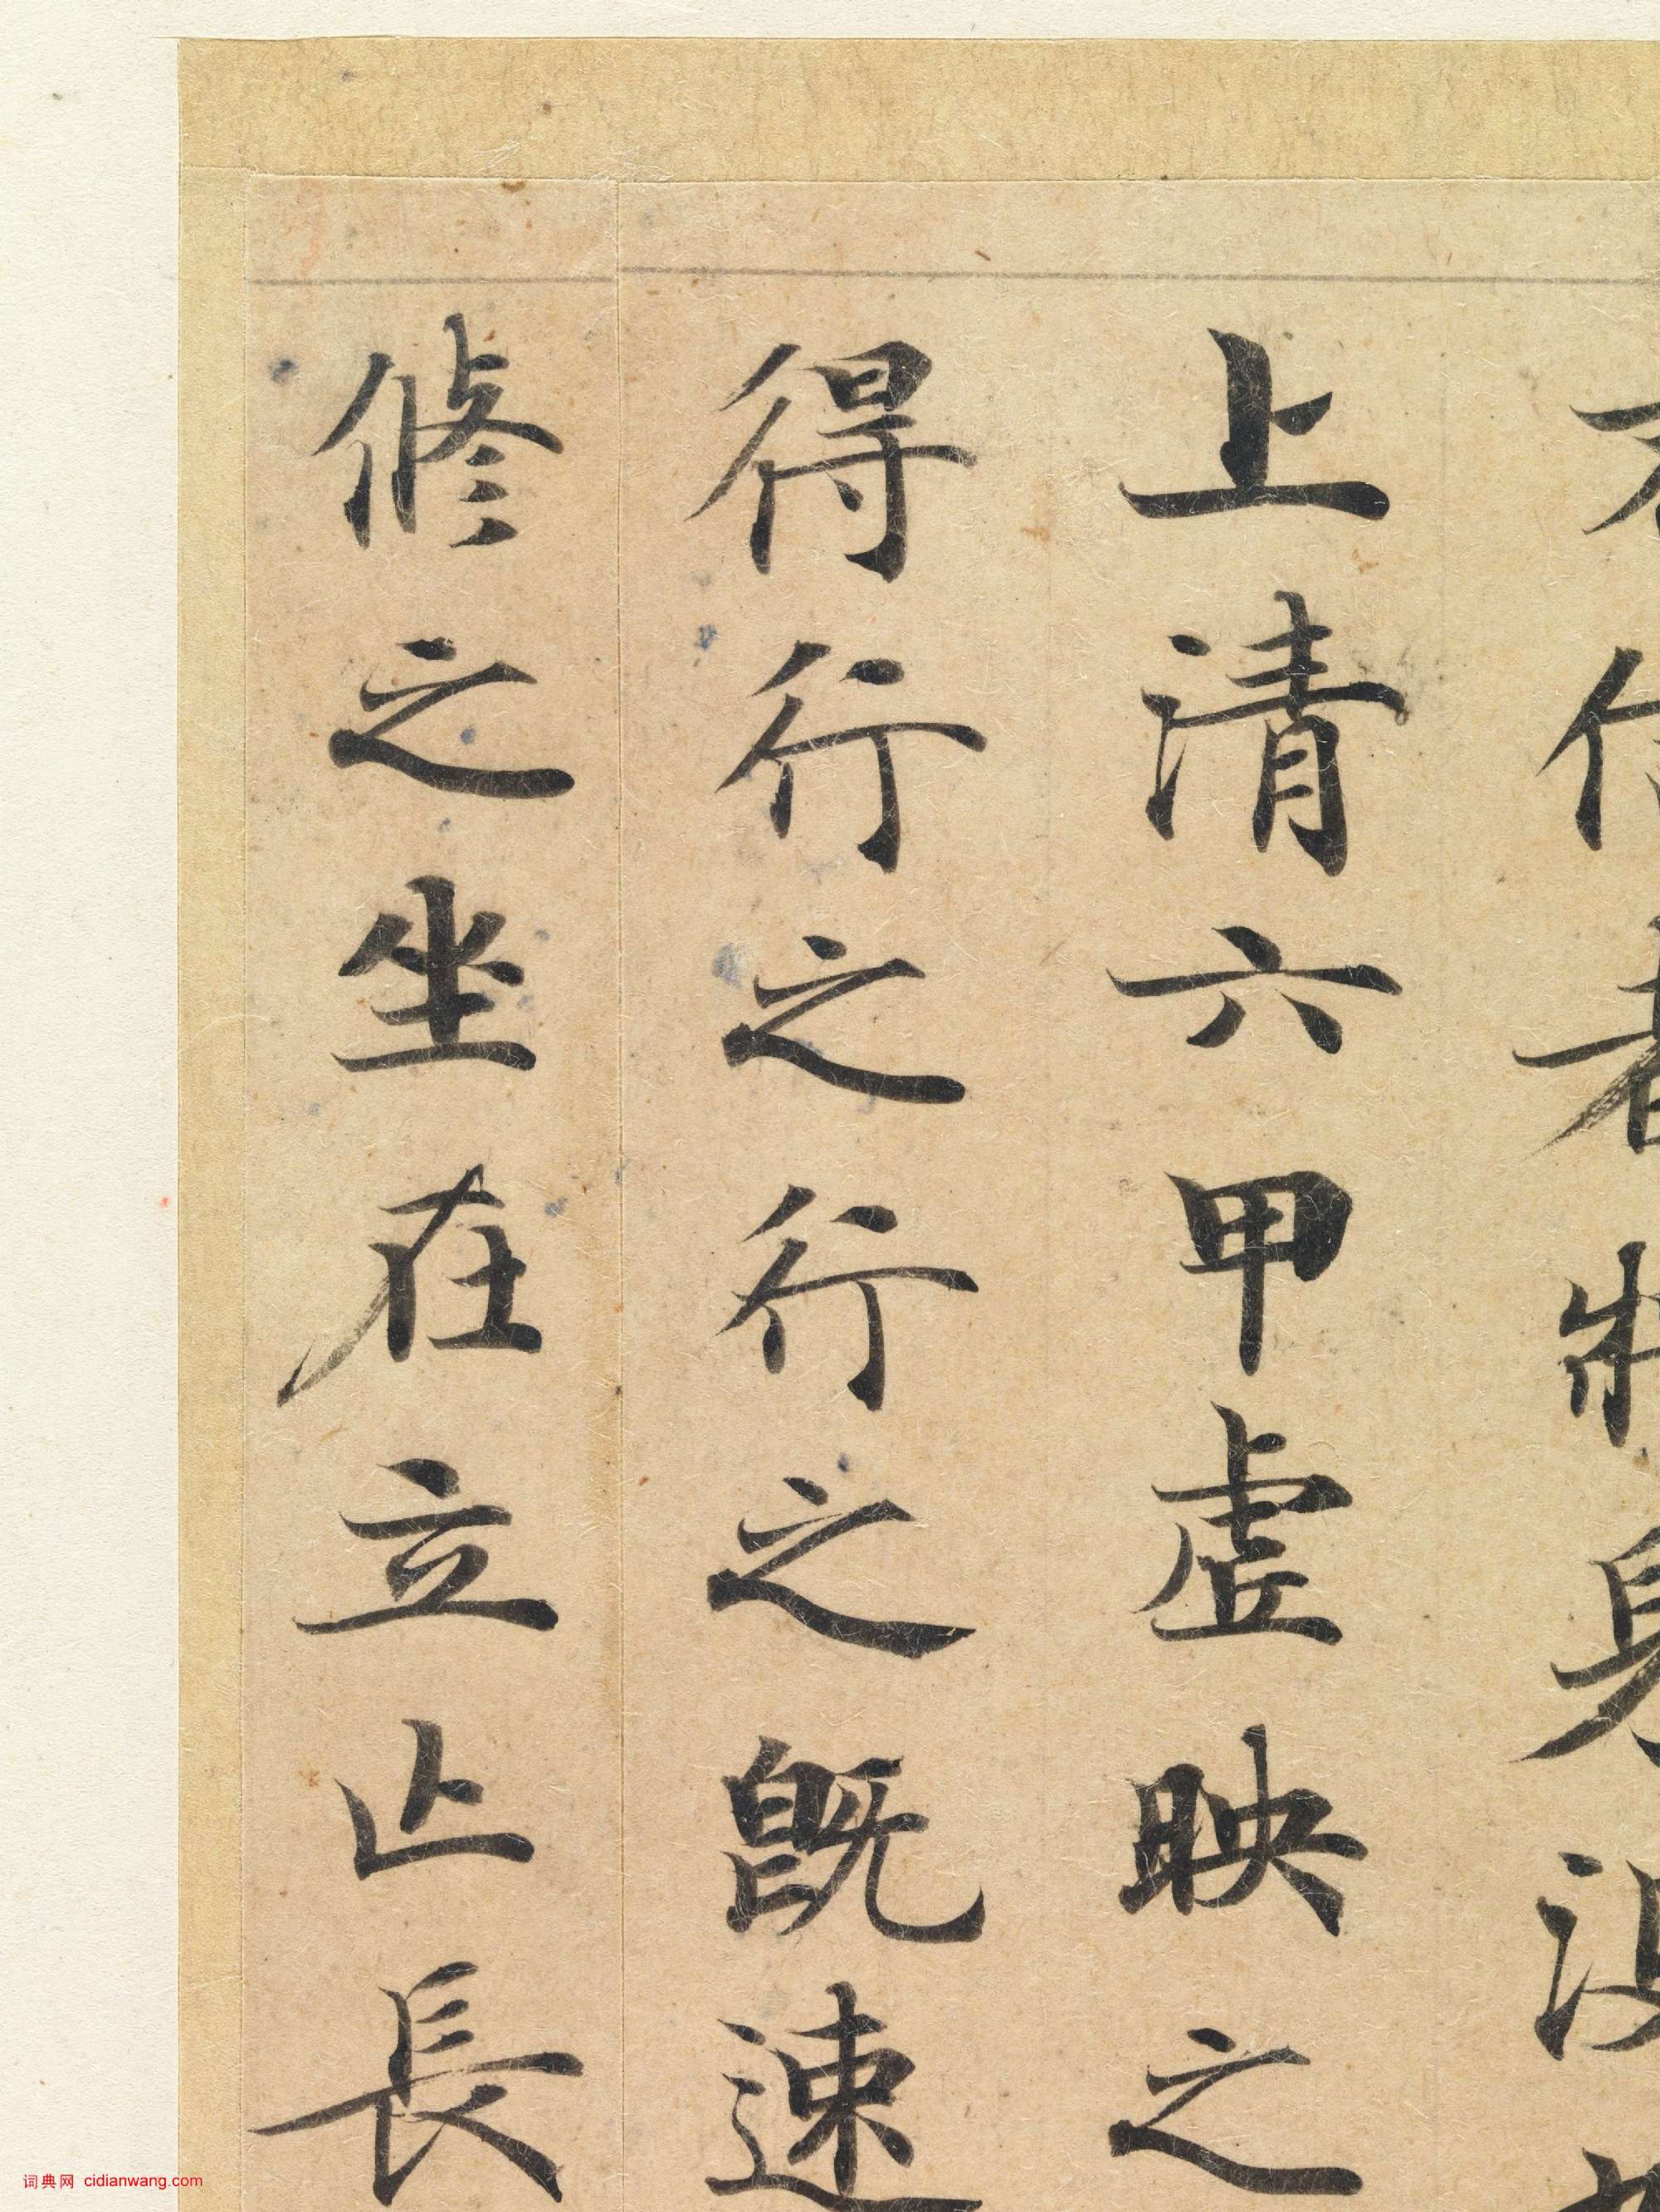 上清六甲虛映之
得行之行之既速
修之坐在立亾長
词典网 cidianwang.com